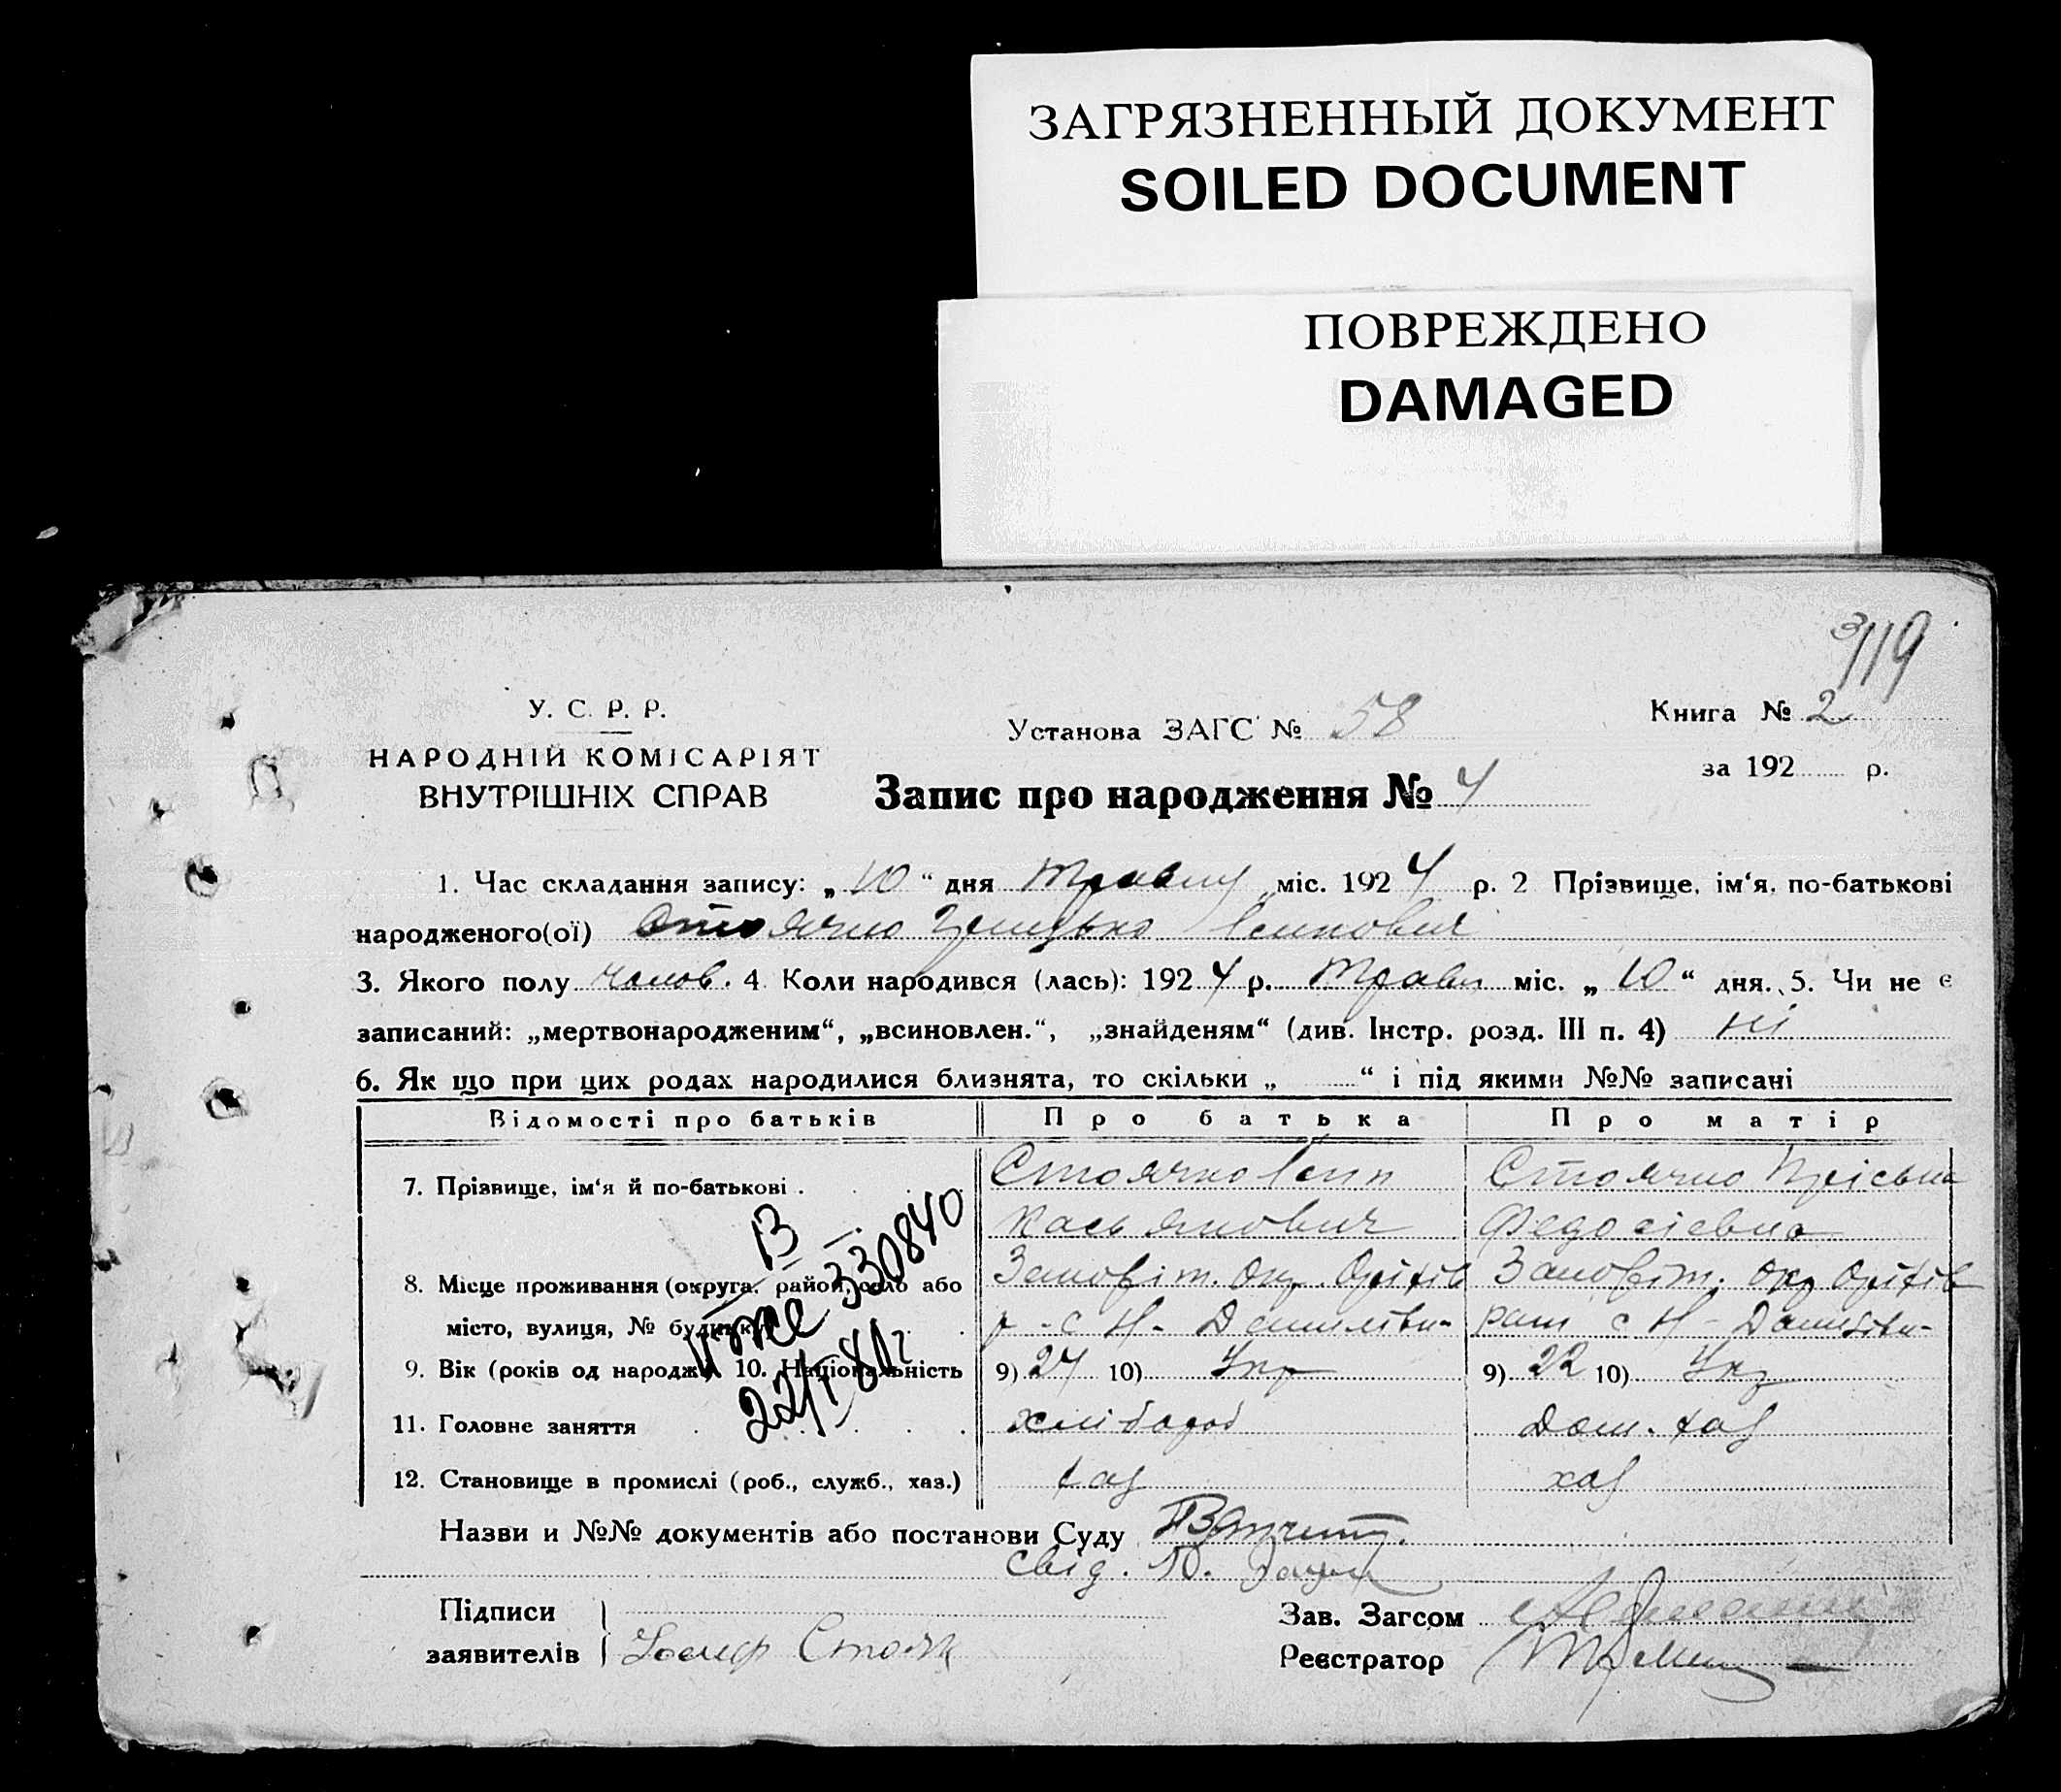 ЗАГРЯЗНЕННЫЙ ДОКУМЕНТ
SOILED DOCUMENT
ПОВРЕЖДЕНО
DAMAGED
319
У. С. Р. Р.
НАРОДНІЙ КОМІСАРІЯТ
ВНУТРІШНІХ СПРАВ
Установа ЗАГС № 58
Книга № 2
за 192 р.
Запис про народження № 4
1. Час складання запису: „ 10 “ дня Травну міс. 192 4 р. 2 Прізвище, ім‘я, по-батькові
народженого(ої) Стоячко Грицько Іосипович
3. Якого полу чолов. 4 Коли народився (лась): 192 4 р. Травн міс. „ 10 “ дня. 5. Чи не є
записаний: „мертвонародженим“, „всиновлен.“, „знайденям“ (див. Інстр. розд. III п. 4) ні
6. Як що при цих родах народилися близнята, то скільки „ “ і під якими №№ записані
Відомості про батьків Про батька Про матір
7. Прізвище, ім‘я й по-батькові . Стоячко Іосип Стоячко Пріська
Касьянович Федосієвна
8. Місце проживання (округа, район, село або Запоріт. окр. Оріхів Запоріт. окр Оріхів
місто, вулиця, № будинку р. с Н- Данилівк- раш с Н- Данилівк-
9. Вік (років од народж.) 10. Національність 9) 27 10) Укр 9) 22 10) Укр
11. Головне заняття хлібороб Дом. хаз
12. Становище в промислі (роб., служб., хаз.) хаз хаз
IV ЖС 330840
22/I 81г
Назви и №№ документів або постанови Суду
свід. 10.
Підписи
заявителів Стояч
Зав. Загсом
Реєстратор